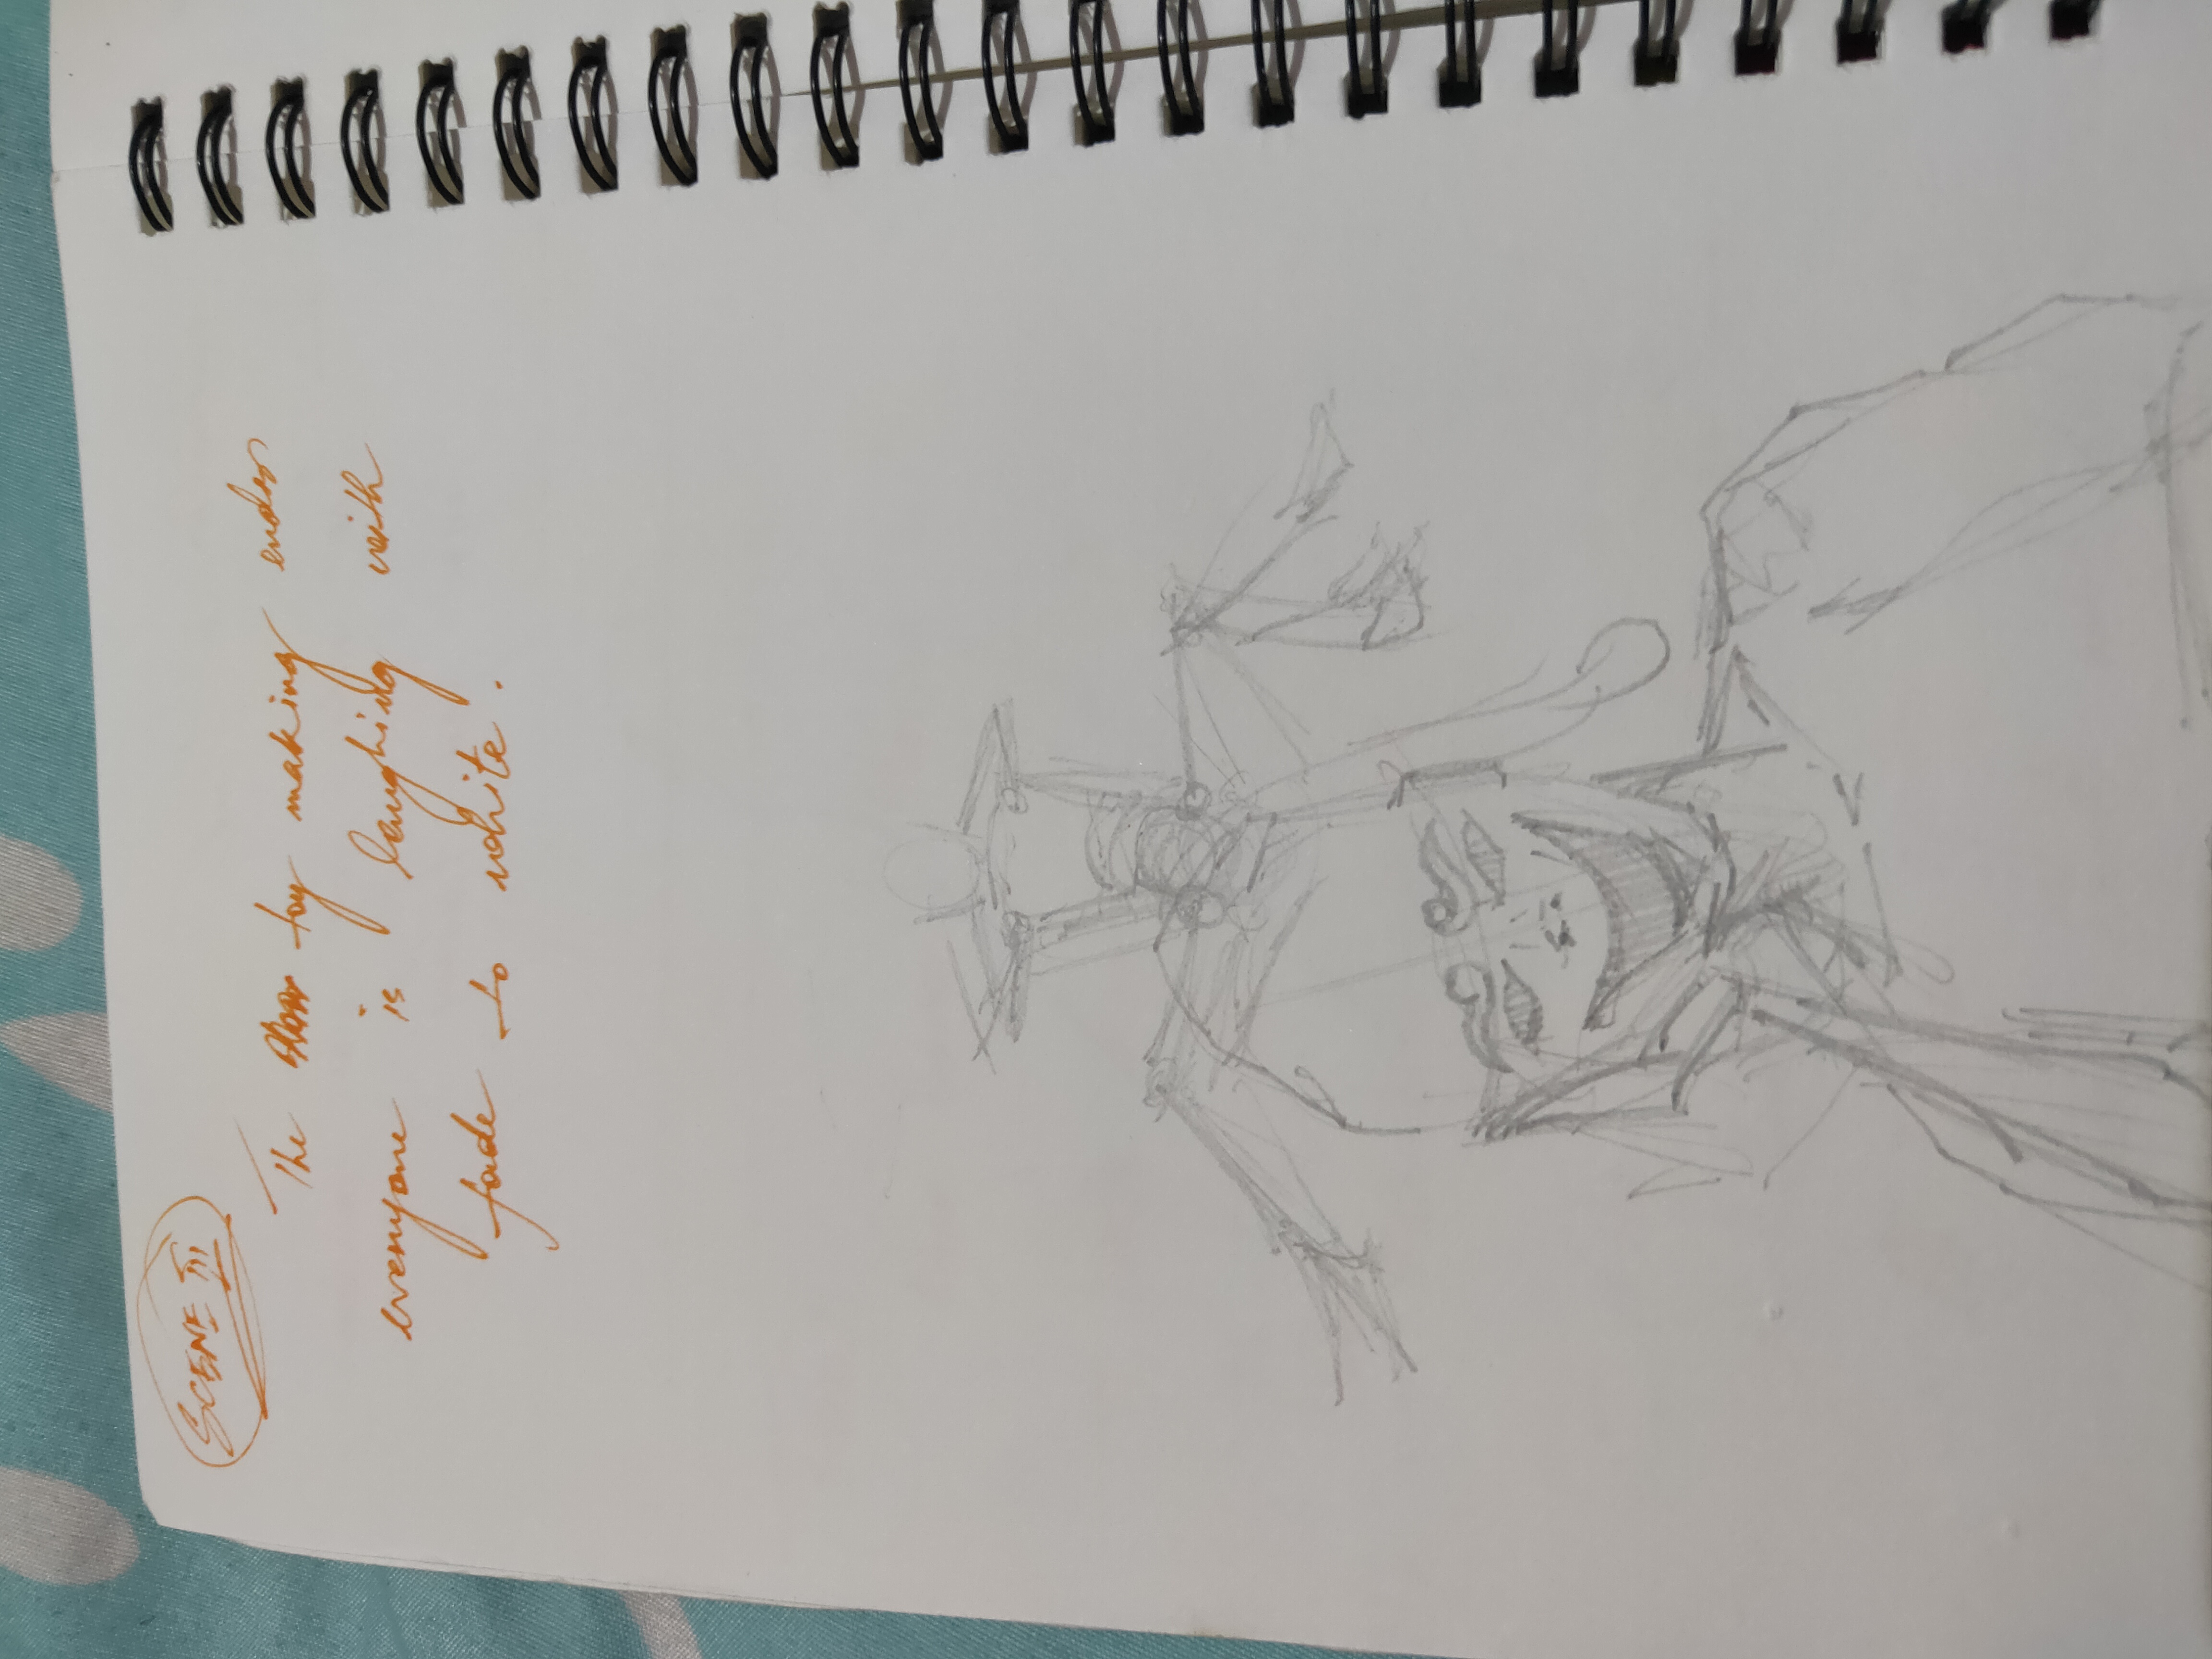 SCENE III
The toy making ends
everyone is laughing with
fade to white.